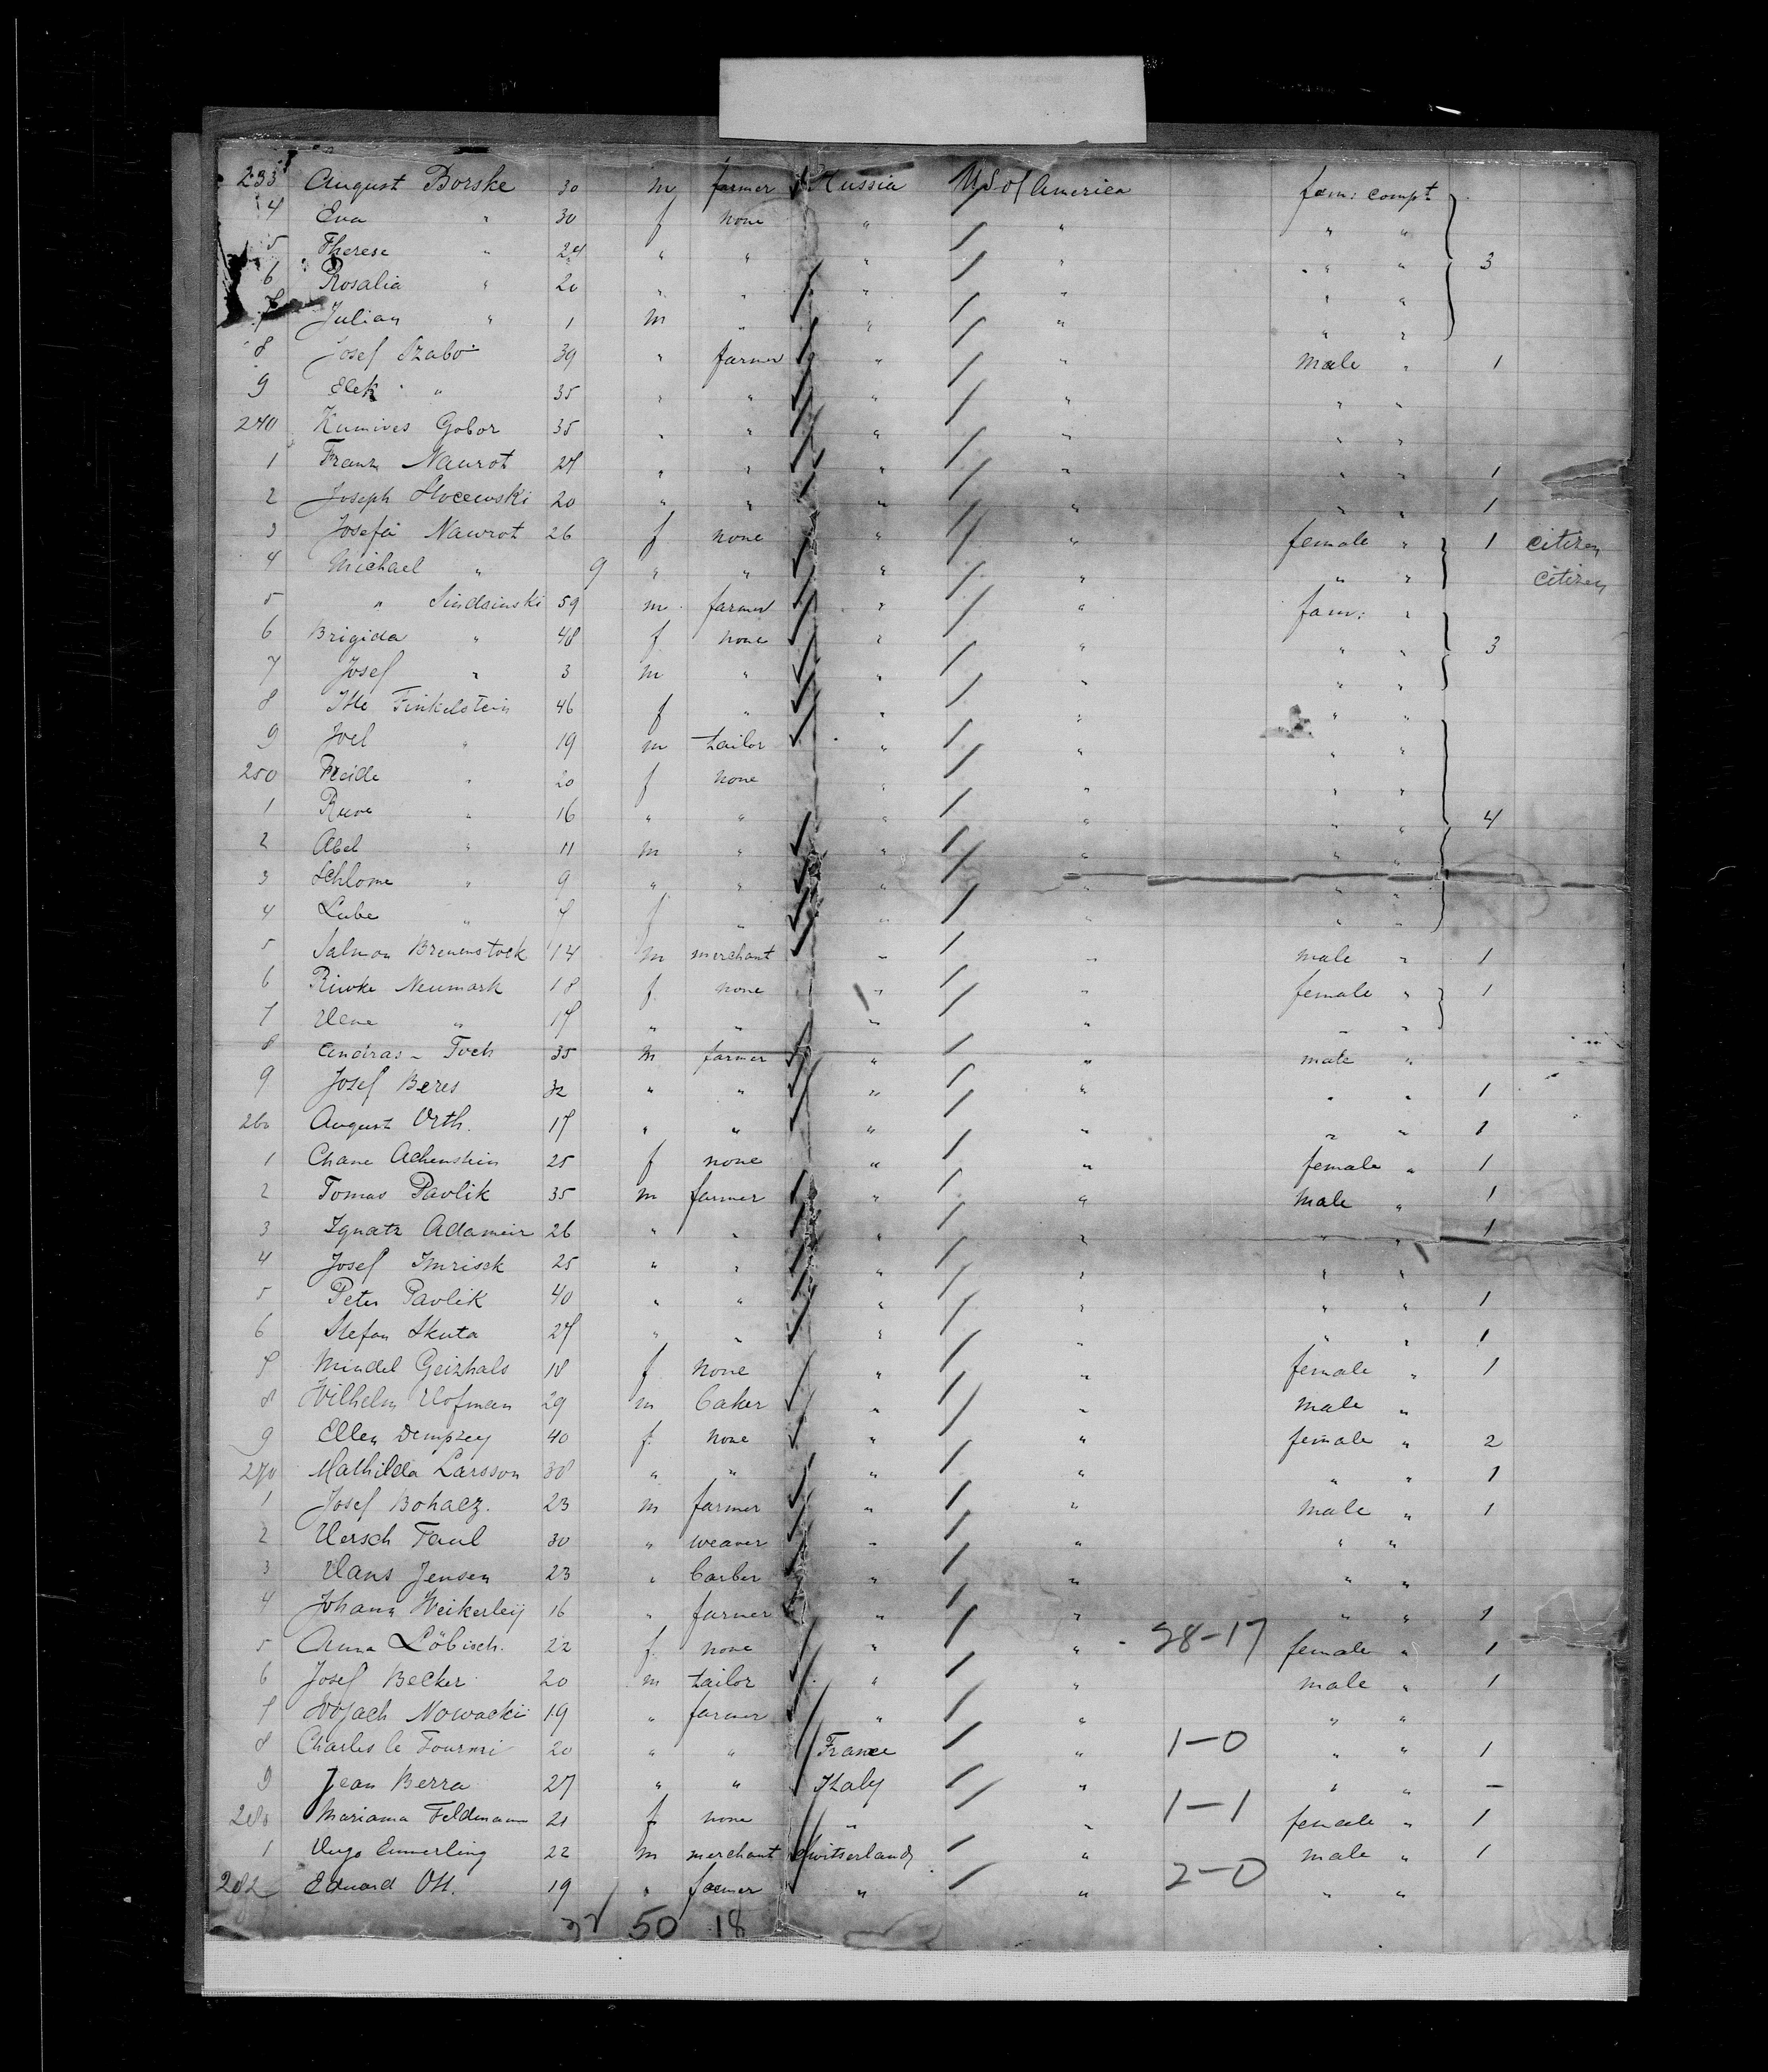 233 August Borske 30 m farmer Russia U S of America fam: compt
4 Eva " 30 f none " " " "
5 Therese " 24 " " " " " " 3
6 Rosalia " 20 " " " " " "
7 Julian " 1 m " " " " "
8 Josef Szabo 39 " farmer " " male " 1
9 Elek " 35 " " " " " "
240 Kumives Gobor 35 " " " " " "
1 Franz Naurot 27 " " " " " " 1
2 Joseph 20 " " " " " " 1
3 Josefa Nawrot 26 f none " " female " 1 citizen
4 Michael " 9 " " " " " " citizen
5 " 59 m farmer " " fam: "
6 Brigida " 48 f none " " " " 3
7 Josef " 3 m " " " " "
8 Itte Finkelstein 46 f " " " " "
9 Joel " 19 m tailor " " " "
250 Freide " 20 f none " " " "
1 " 16 " " " " " " 4
2 Abel " 11 m " " " " "
3 Schlome " 9 " " " " " "
4 Lube " 7 f " " " " "
5 Salmon 14 m merchant " " male " 1
6 Riwke Neumark 18 f none " " female " 1
7 " 17 " " " " " "
8 Andras Toch 35 m farmer " " male "
9 Josef Beres 32 " " " " " " 1
260 August Orth. 17 " " " " " " 1
1 Chane Achenstein 25 f none " " female " 1
2 Tomas Pavlik 35 m farmer " " male " 1
3 Ignatz 26 " " " " " " 1
4 Josef 25 " " " " " "
5 Peter Pavlik 40 " " " " " " 1
6 Stefan Skuta 27 " " " " " " 1
7 Mindel Geizhals 18 f none " " female " 1
8 Wilhelm Hofman 29 m baker " " male "
9 Ellen Dempsey 40 f none " " female " 2
270 Mathilda Larsson 38 " " " " " " 1
1 Josef Bohacz. 23 m farmer " " male " 1
2 Hersch Faul 30 " weaver " " " "
3 Hans Jensen 23 " barber " " " "
4 Johann Weikerley 16 " farmer " " " " 1
5 Anna Löbisch. 22 f none " " 28-17 female " 1
6 Josef Becker 20 m tailor " " male " 1
7 Nowacki 19 " farmer " " " "
8 Charles le Fourmi 20 " " France " 1-0 " " 1
9 Jean Berra 27 " " Italy " " " -
280 Mariama Feldmann 21 f none " " 1-1 female " 1
1 Hugo Emmerling 22 m merchant Switserland " male " 1
282 Eduard Ott. 19 " farmer " " 2-0 " "
50 18